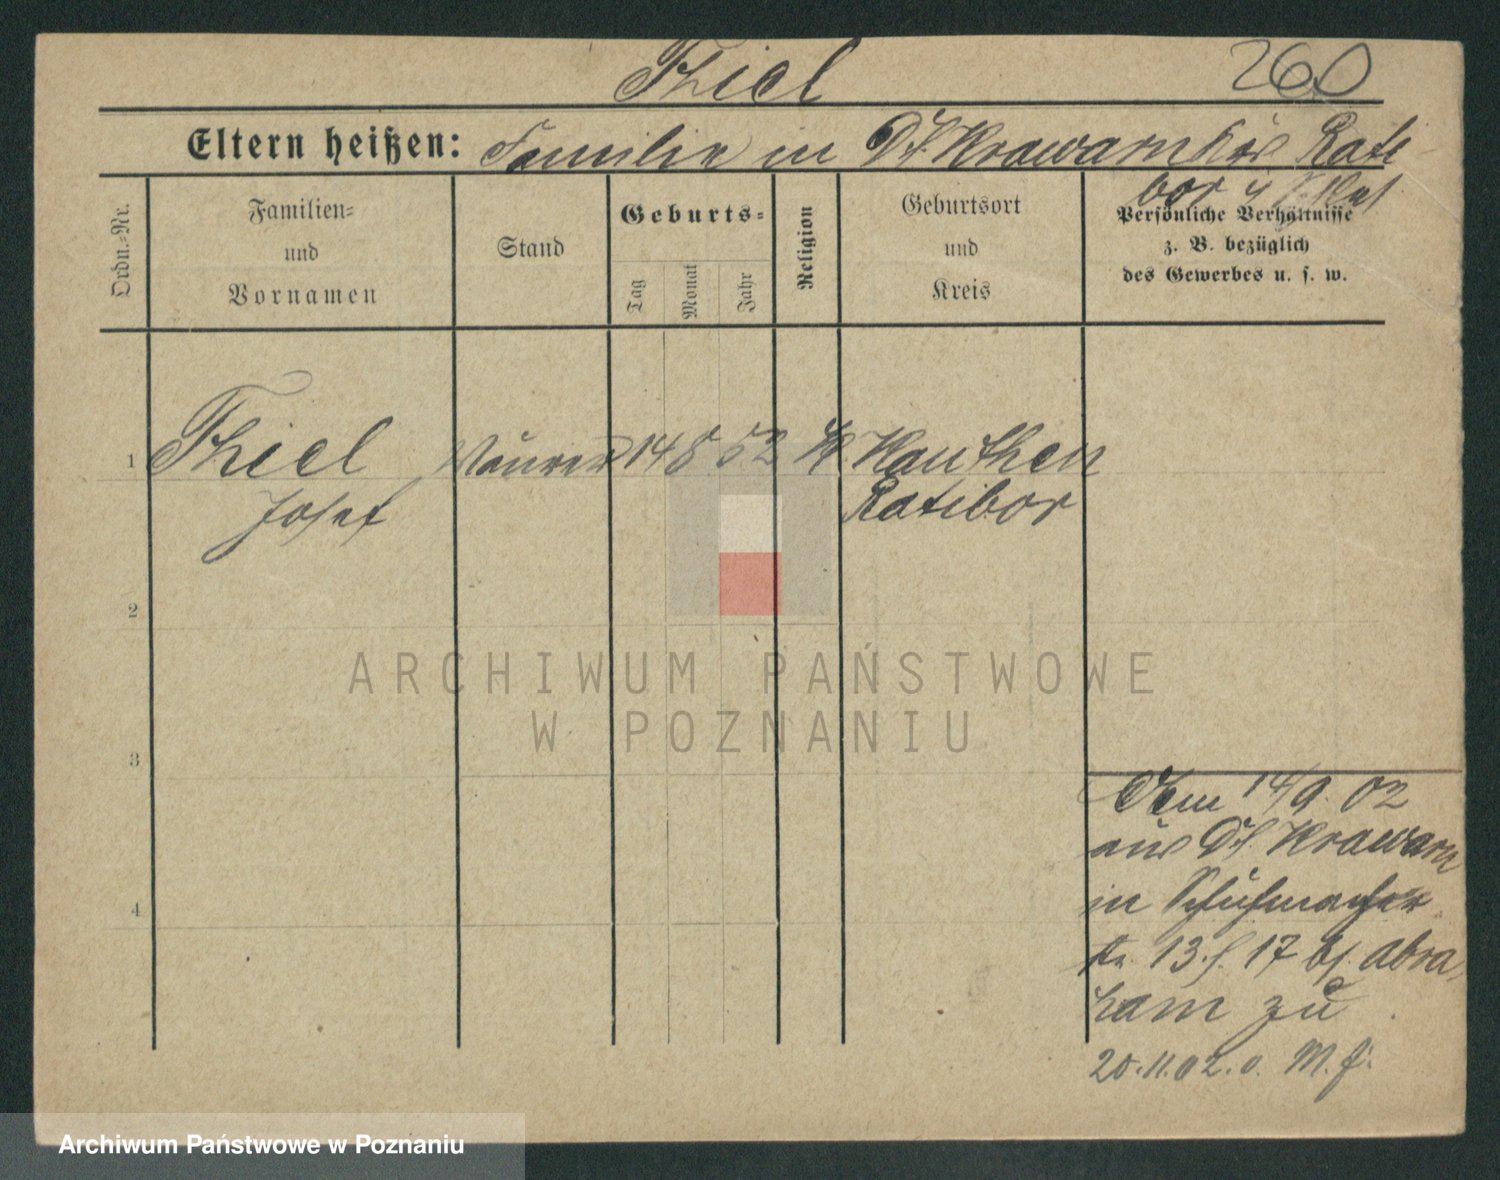 Thiel 260
Eltern heißen: Familie in Dt. Krawarn Kr. Rati-
bor
Ordn.-Nr.
Familien-
und
Vornamen
Stand
Geburts-
Tag
Monat
Jahr
Religion
Geburtsort
und
Kreis
Persönliche Verhältnisse
z. B. bezüglich
des Gewerbes u. s. w.
1 Thiel Maurer 14 8 52 k Kauthen
Josef Ratibor
2
3
4
14/9. 02
aus Dt. Krawarn
in Schuhmacher
str. 13. h. 17 b/. Abra-
ham zu
20.11.02.
ARCHIWUM PAŃSTWOWE
W POZNANIU
Archiwum Państwowe w Poznaniu